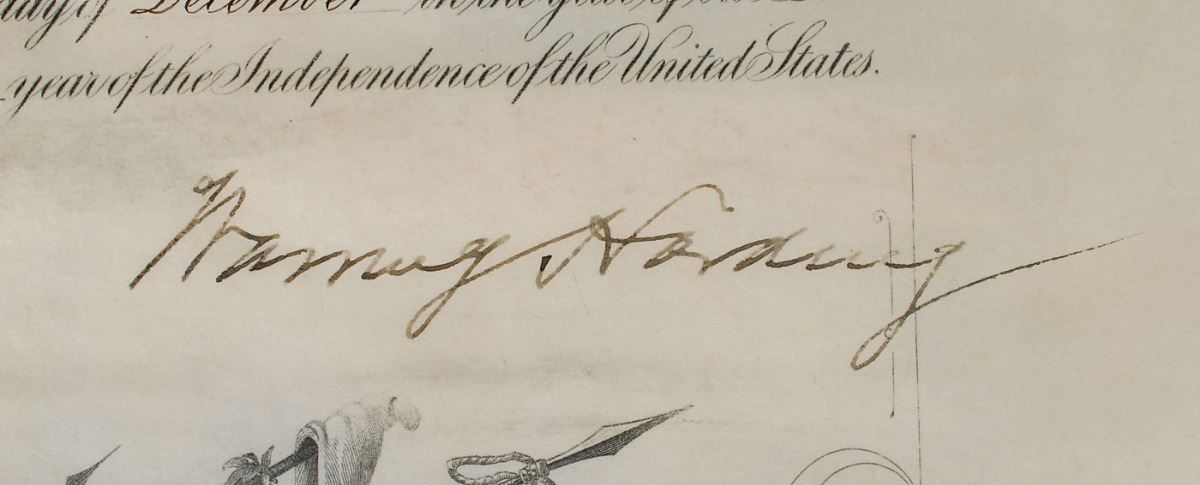 day of December in the year of our
year of the Independence of the United States.
Warren G Harding